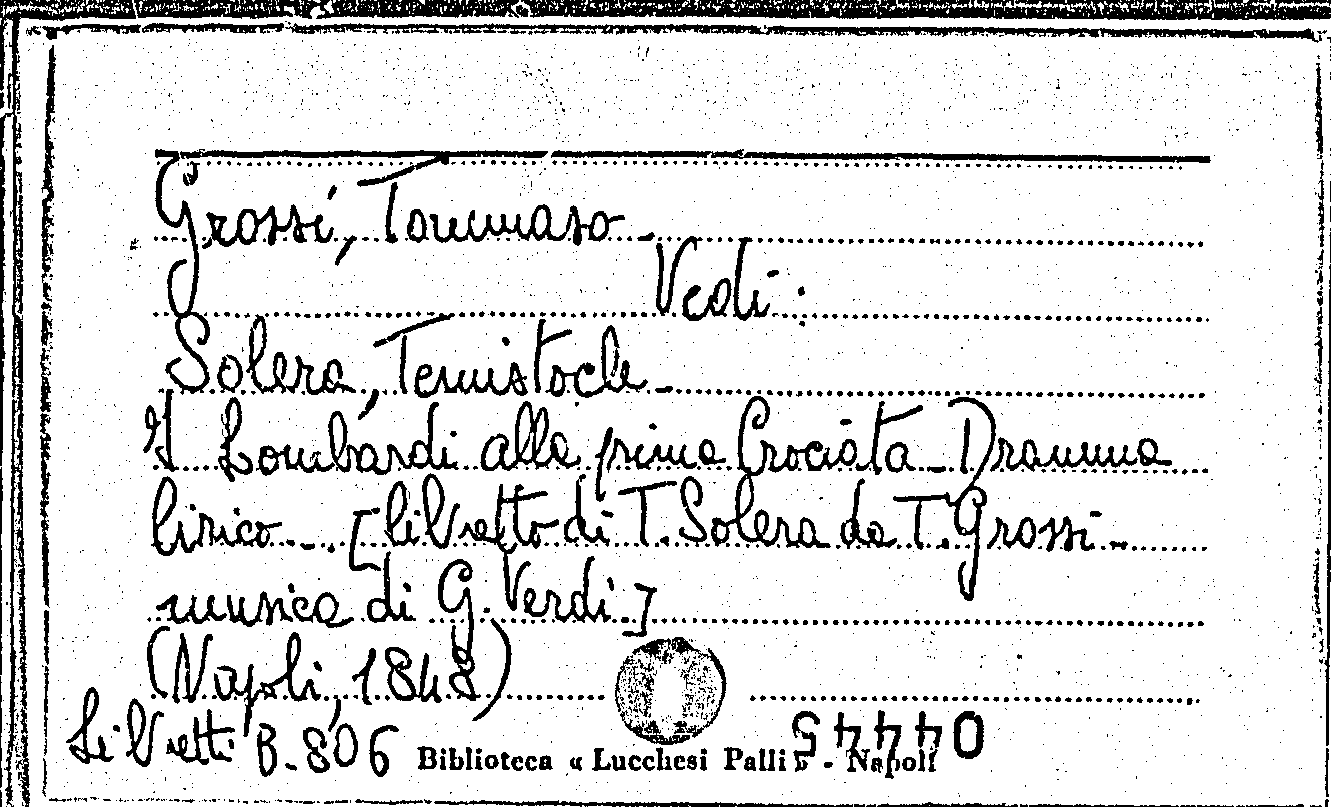 Grossi, Tommaso -
Vedi:
Solera, Temistocle -
I Lombardi alla prima Crociata - Dramma
lirico - . [libretto di T. Solera da T. Grossi -
musica di G. Verdi]
(Napoli, 1848)
Libretti B. 806
Biblioteca « Lucchesi Palli » - Napoli
04445